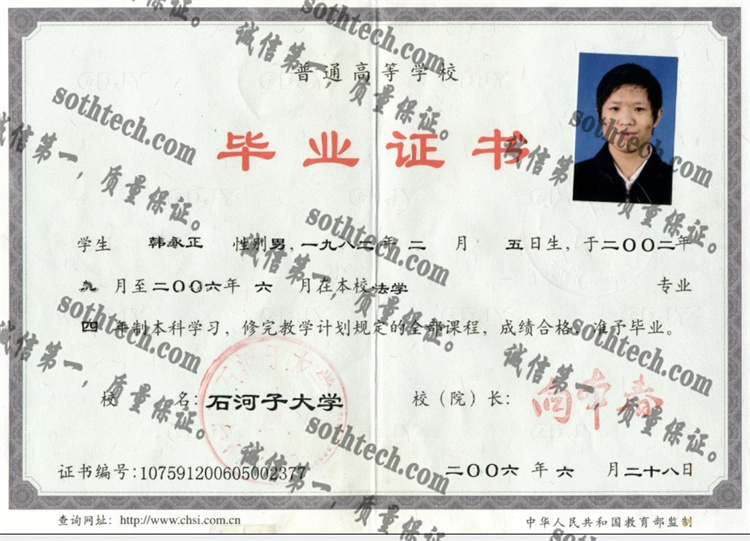 普通高等学校
毕业证书
学生 韩永正 性别男，一九八二年二月五日生，于二〇〇二年
九月至二〇〇六年六月在本校法学 专业
四年制本科学习，修完教学计划规定的全部课程，成绩合格，准予毕业。
校 名：石河子大学 校（院）长：向本春
证书编号：107591200605002377 二〇〇六年六月二十八日
查询网址：http://www.chsi.com.cn 中华人民共和国教育部监制
sothtech.com
诚信第一，质量保证。
sothtech.com
诚信第一，质量保证。
sothtech.com
诚信第一，质量保证。
sothtech.com
诚信第一，质量保证。
sothtech.com
诚信第一，质量保证。
sothtech.com
诚信第一，质量保证。
sothtech.com
诚信第一，质量保证。
sothtech.com
诚信第一，质量保证。